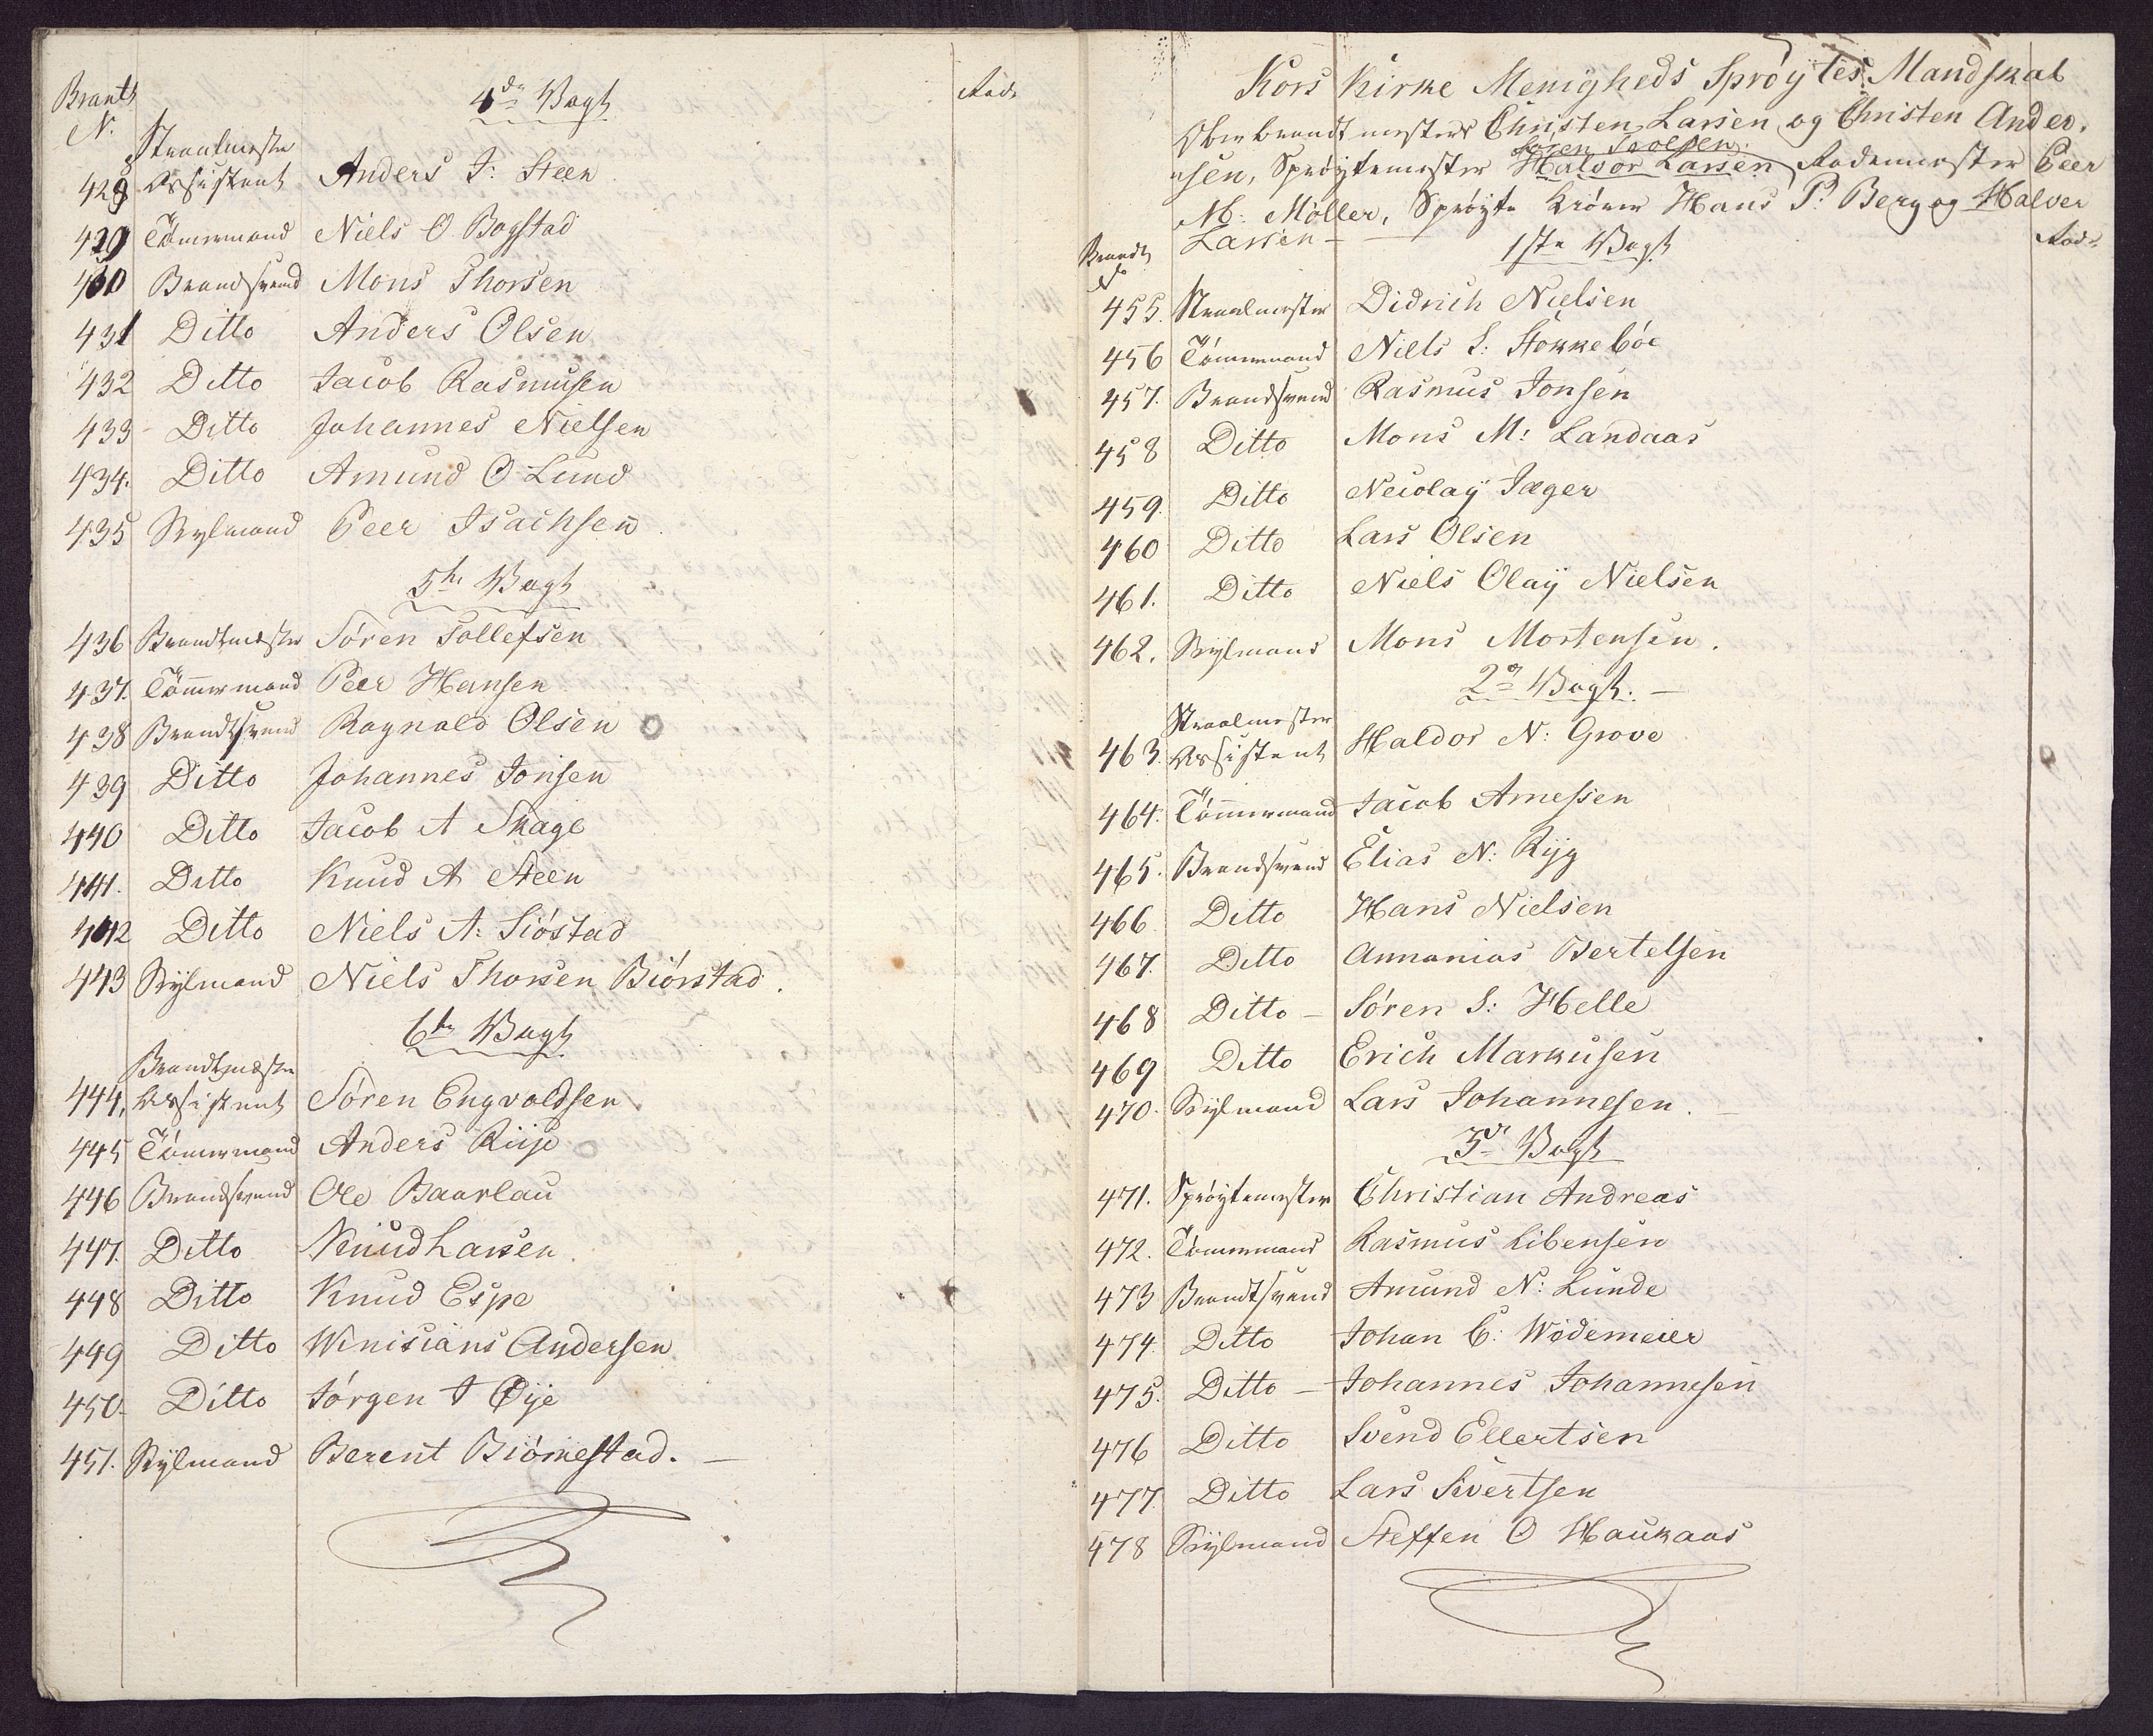 Brandts
N.
4de Vagt
Rode
Straalmester
428 Assistent Anders J: Steen
429 Tömermand Niels O Bogstad
430 Brandsvend Mons Thorsen
431 Ditto Anders Olsen
432 Ditto Jacob Rasmusen
433 Ditto Johannes Nielsen
434. Ditto Amund O Lund
435 Skylmand Peer Isachsen
5te Vagt
436 Brandtmester Sören Tollefsen
437. Tömmermand Peer Hansen
438 Brandtsvend Ragnald Olsen
439 Ditto Johannes Jonsen
440 Ditto Jacob A Skage
441. Ditto Knud A Steen
442 Ditto Niels A: Siöstad
443 Skylmand Niels Thorsen Biörstad.
6te Vagt
Brandtmester
444, Assistent Sören Engvoldsen
445 Tömermand Anders Riise
446 Brandsvend Ole Baarlau
447. Ditto Knud Larsen
448 Ditto Knud Espe
449 Ditto Winisians Andersen
450. Ditto Jörgen J Öije
451. Skylmand Berent Biörnestad. —
Kors Kirke Menigheds Spröytes Mandskab
Oberbrandtmester Christen Larsen og Christen Ander,
Sören
sen, Spröytemester Halvor Larsen, Rodemester Peer
M: Möller, Spröyte Hans P: Berg og Halver
Larsen —
1ste Vagt
Rode
Brandts
No
455. Straalmester Didrich Nielsen
456 Tömermand Niels S: Stokkeböe
457. Brandsvend Rasmus Jonsen
458 Ditto Mons M: Landaas
459. Ditto Neiolay Jæger
460 Ditto Lars Olsen
461. Ditto Niels Olaÿ Nielsen
462. Skylmand Mons Mortensen.
2den Vagt. —
Straalmester
463. Assistent Haldor N: Grove
464. Tömmermand Jacob Arnessen
465. Brandsvend Elias N: Rÿg
466. Ditto Hans Nielsen
467. Ditto Annanias Bertelsen
468 Ditto — Sören S: Helle
469 Ditto Erich Markusen
470. Skylmand Lars Johannesen. —
3de Vagt
471. Spröytemester Christian Andreas
472. Tömermand Rasmus Libensen
473 Brandtsvend Amund N: Lunde
474. Ditto Johan C: Wödemeier
475. Ditto — Johannes Johannesen
476 Ditto Svend Ellertsen
477. Ditto Lars Sivertsen
478 Skylmand Steffen O Haukaas